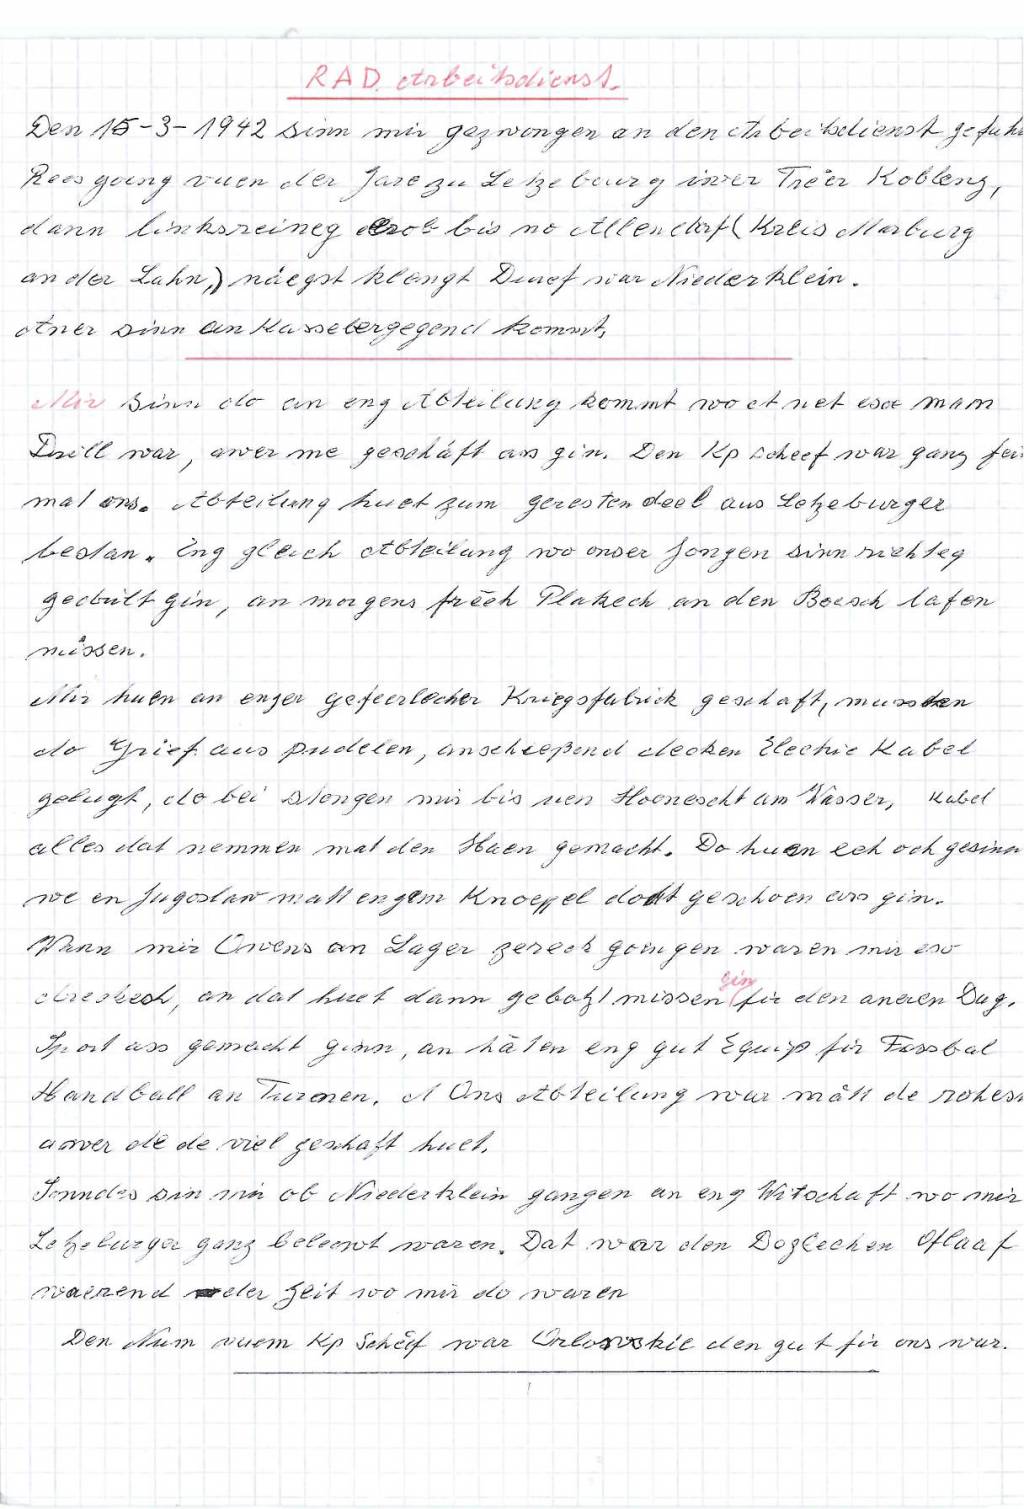 RAD. Arbeitsdienst.
Den 15-3-1942 sinn mir gezwongen an den Arbeitsdienst gefuh
Rees goung vuen der Gare zu Letzebourg iwer Treer Koblenz,
dann linksreineg erob bis no Allendorf (Kreis Marburg
an der Lahn,) näegst klengt Duerf war Niederklein.
Aner sinn an Kasselergegend kommt.
Mir sinn do an eng Abteilung kommt wo et net esou mam
Drill war, awer me geschäft ass gin. Den Kp scheef war ganz fei
mat ons. Abteilung huet zum greesten deel aus Letzeburger
bestan. Eng gleich Abteilung wo onser Jongen sinn richteg
gedrillt gin, an morgens fréeh Plakech an den Boesch lafen
missen.
Mir huen an enger gefeerlecher Kriegsfabrick geschaft, mussten
do Grief aus pudelen, anschießend decken Electric Kabel
geluegt, do bei stongen mir bis uen Hoonescht am Wasser, Kabel
alles dat nemmen mat den Haen gemacht. Do huen ech och gesinn
we en Jugoslaw matt engem Knoeppel dodt geschoen ass gin.
Wann mir Owens an Lager zereck gongen waren mir eso
dreckech, an dat huet dann gebotzt missen gin fir den aneren Dag.
Sport ass gemacht ginn, an häten eng gut Equip fir Fossbal
Handball an Turnen. A Ons Abteilung war mätt de rohes
awer dé de viel geschaft huet.
Sonndes sin mir ob Niederklein gangen an eng Witschaft wo mir
Letzeburger ganz beleewt waren. Dat war den Dogleechen Oflaaf
waerend der Zeit wo mir do waren
Den Num vuem Kp Schéf war Orlowskie den gut fir ons war.